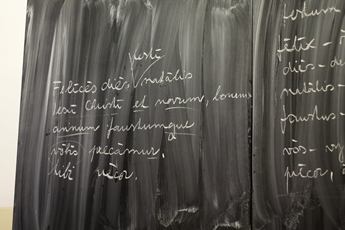 festī
Fēlīcēs diēs nātālis
Iesū Christī et novum, bonum
annum faustumque
vōtīs precāmur,
tibi precor.
festum
fēlix -
diēs -
nātālis -
faustus -
vōs -
precor,